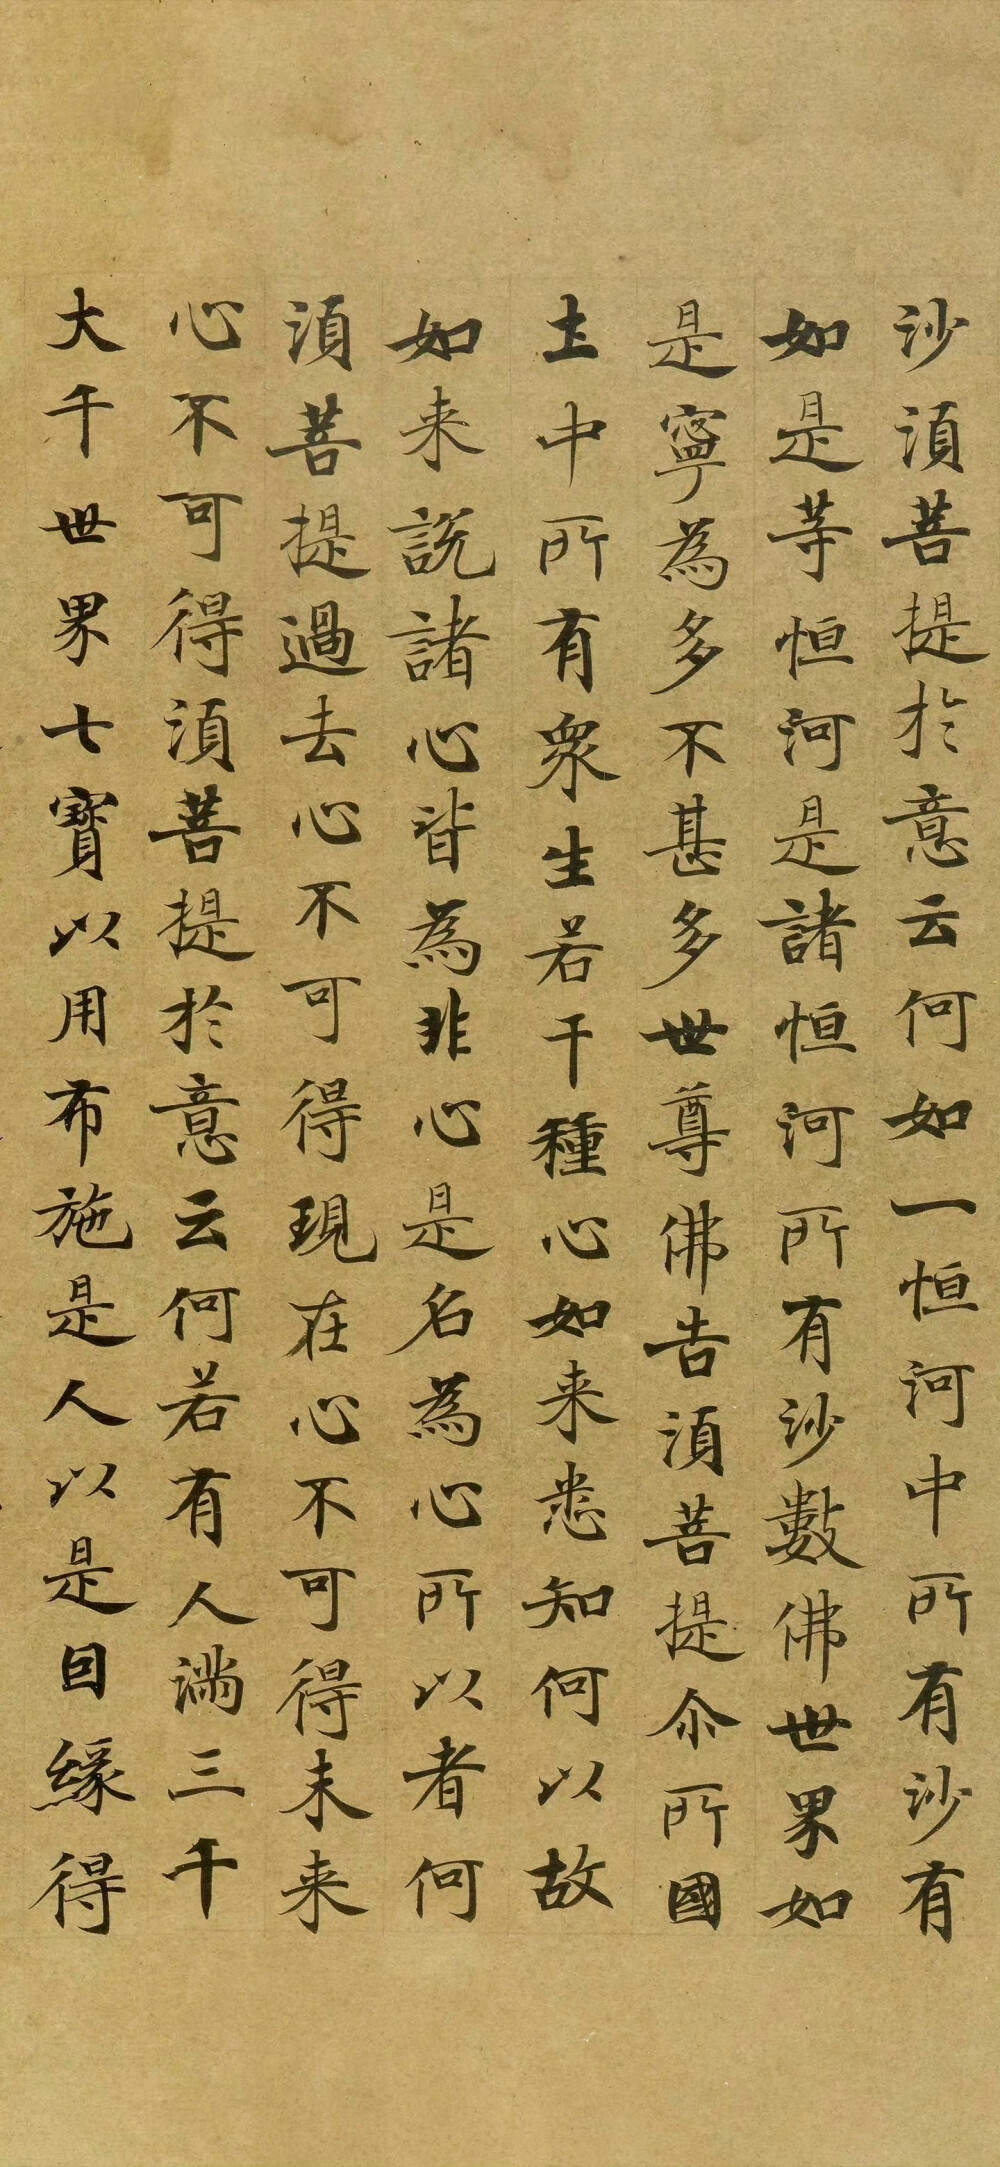 沙湏菩提扵意云何如一恒河中所有沙有
如是荨恒河是諸恒河所有沙數佛世界如
是寧為多不甚多世尊佛告湏菩提尒所國
土中所有衆生若干種心如来悉知何以故
如来説諸心皆為非心是名為心所以者何
湏菩提過去心不可得現在心不可得未来
心不可得湏菩提扵意云何若有人满三千
大千世界七寳以用布施是人以是囙縁得